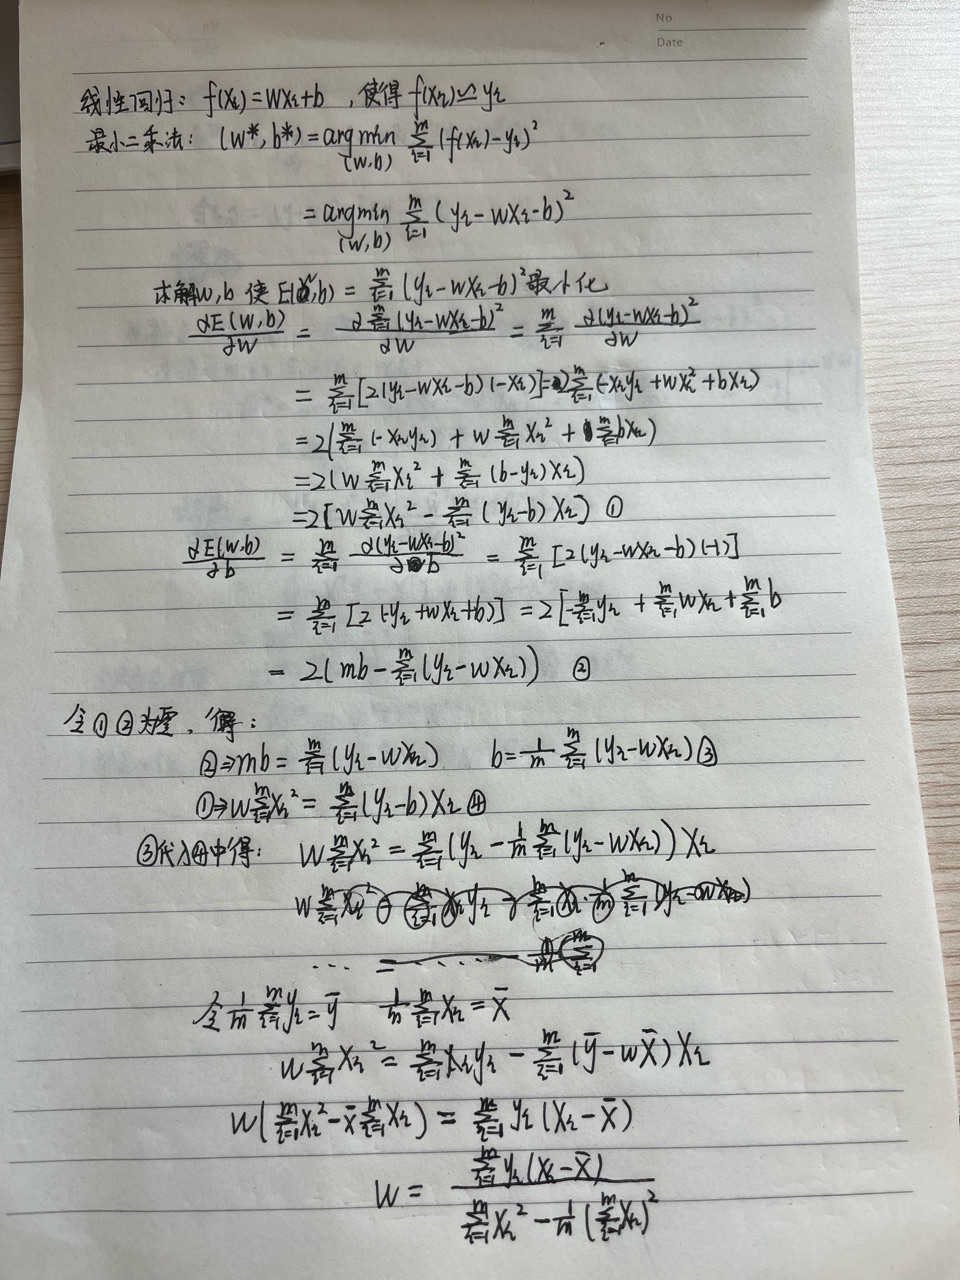 No
Date
线性回归: f(xᵢ)=wxᵢ+b ,使得 f(xᵢ)≃yᵢ
最小二乘法: (w*,b*)=argmin_(w,b) Σ_{i=1}^m (f(xᵢ)-yᵢ)²
=argmin_(w,b) Σ_{i=1}^m (yᵢ-wxᵢ-b)²
求解w,b 使 E(w,b) = Σ_{i=1}^m (yᵢ-wxᵢ-b)²最小化
∂E(w,b)/∂w = ∂Σ_{i=1}^m (yᵢ-wxᵢ-b)²/∂w = Σ_{i=1}^m ∂(yᵢ-wxᵢ-b)²/∂w
= Σ_{i=1}^m [2(yᵢ-wxᵢ-b)(-xᵢ)]=2Σ_{i=1}^m (-xᵢyᵢ+wxᵢ²+bxᵢ)
=2(Σ_{i=1}^m (-xᵢyᵢ) + wΣ_{i=1}^m xᵢ² + Σ_{i=1}^m bxᵢ)
=2(wΣ_{i=1}^m xᵢ² + Σ_{i=1}^m (b-yᵢ)xᵢ)
=2[wΣ_{i=1}^m xᵢ² - Σ_{i=1}^m (yᵢ-b)xᵢ] ①
∂E(w,b)/∂b = Σ_{i=1}^m ∂(yᵢ-wxᵢ-b)²/∂b = Σ_{i=1}^m [2(yᵢ-wxᵢ-b)(-1)]
= Σ_{i=1}^m [2(-yᵢ+wxᵢ+b)] = 2[-Σ_{i=1}^m yᵢ + Σ_{i=1}^m wxᵢ + Σ_{i=1}^m b
= 2(mb-Σ_{i=1}^m (yᵢ-wxᵢ)) ②
令①②为零,得:
②⇒mb=Σ_{i=1}^m (yᵢ-wxᵢ) b=1/m Σ_{i=1}^m (yᵢ-wxᵢ)③
①⇒wΣ_{i=1}^m xᵢ²=Σ_{i=1}^m (yᵢ-b)xᵢ④
③代入④中得: wΣ_{i=1}^m xᵢ² = Σ_{i=1}^m (yᵢ-1/m Σ_{i=1}^m (yᵢ-wxᵢ))xᵢ
令 1/m Σ_{i=1}^m yᵢ=ȳ 1/m Σ_{i=1}^m xᵢ=x̄
wΣ_{i=1}^m xᵢ² = Σ_{i=1}^m xᵢyᵢ - Σ_{i=1}^m (ȳ-wx̄)xᵢ
w(Σ_{i=1}^m xᵢ²-x̄Σ_{i=1}^m xᵢ) = Σ_{i=1}^m yᵢ(xᵢ-x̄)
w = Σ_{i=1}^m yᵢ(xᵢ-x̄) / Σ_{i=1}^m xᵢ²-1/m(Σ_{i=1}^m xᵢ)²